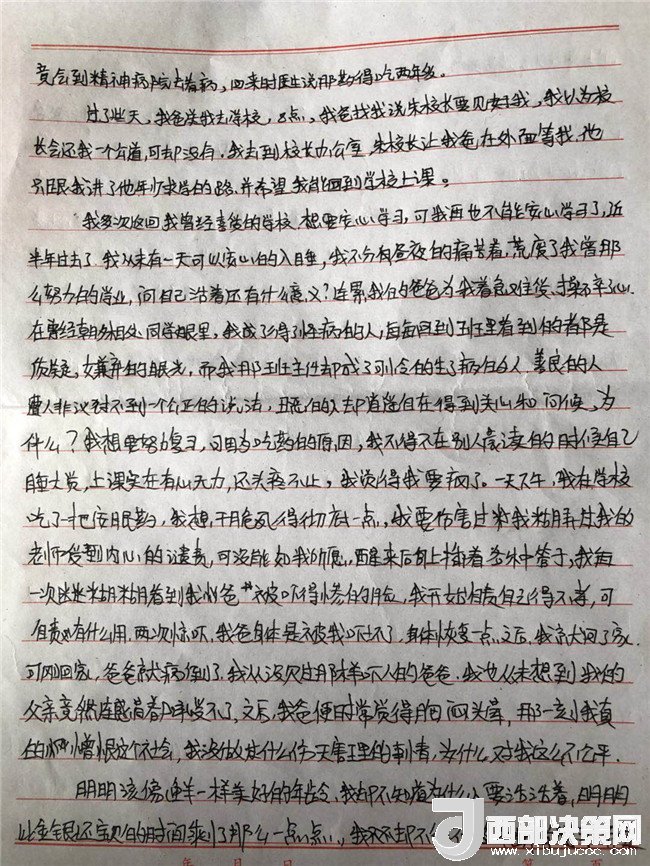 竟会到精神病院去看病，回来时医生说那药得吃两年多。
过了些天，我爸送我去学校，8点，我爸找我说朱校长要见好我，我以为校
长会还我一个公道，可却没有，我去到校长办公室，朱校长让我爸在外面等我，他
只跟我讲了他年少求学的路，并希望我能回到学校上课。
我多次返回我曾经喜爱的学校，想要安心学习，可我再也不能安心学习了，近
半年过去了，我从未有一天可以安心的入睡，我不分昼夜的痛苦着，荒废了我曾那
么努力的学业，问自己活着还有什么意义？连累我的爸爸为我着急难受，操不完了心，
在曾经朝夕相处同学眼里，我成了得了怪病的人，每每回到班里看到的都是
质疑，嫌弃的眼光，而我那班主任却成了可怜的生了病的人，善良的人
费人非议却不到一个公正的说法，丑恶的人却肖遥自在得到关心和问候，为
什么？我想要努力复习，可因为吃药的原因，我不得不在别人晨读的时候自己
睡大觉，上课实在有心无力，还头疼不止，我觉得我要疯了。一天下午，我在学校
吃了一把安眠药，我想，干脆死得彻底一点，我要伤害过我
老师受到内心的谴责，可没能如我所愿，醒来后身上插着各
一次迷迷糊糊看到我爸爸被吓得惨白的脸，我开始责怪自己得不孝，可
自责也有什么用，两次惊吓，我爸身体是被我吓坏了，身体恢复一点之后，我就又回了家，
可刚回家，爸爸就病倒了，我从没见过那样吓人的爸爸，我也从未想到我的
父亲竟然连感冒都承受不了，之后，我爸便时常觉得胸闷头晕，那一刻我真
的憎恨这个社会，我没做过什么伤天害理的事，为什么对我这么不公平。
明明该像花一样美好的年龄，我却不知道为什么要活活着，明明
比金银还宝贵的时间
西部决策网
www.xibujuece.com
年 月 日 第 页